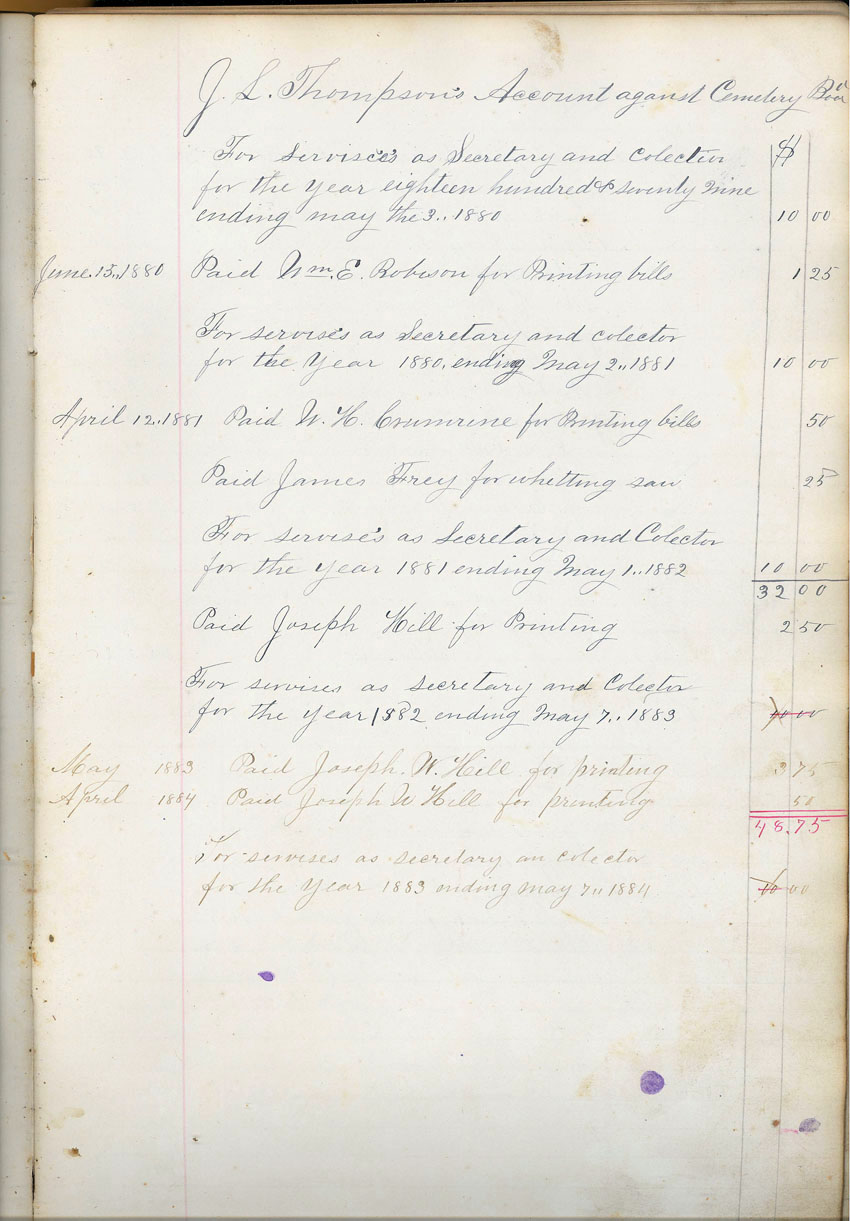 J. L. Thompson's Account aganst Cemetery
For servisces as Secretary and Colector $
for the year eighteen hundred & seventy Nine
ending may the 3,, 1880 10 00
June. 15,, 1880 Paid Wm. E. Robison for Printing bills 1 25
For servise's as Secretary and colector
for the Year 1880, ending May 2,, 1881 10 00
April 12,, 1881 Paid W. H. Crumrine for Printing bills 50
Paid James Frey for whetting saw 25
For servise's as Secretary and Colector
for the year 1881 ending May 1,, 1882 10 00
32 00
Paid Joseph Hill for Printing 2 50
For servises as secretary and Colector
for the year 1882 ending May 7,, 1883 10 00
May 1883 Paid Joseph. W. Hill for printing 3 75
April 1884 Paid Joseph W Hill for printing 50
48.75
For servises as secretary an colector
for the Year 1883 ending may 7,, 1884 10 00